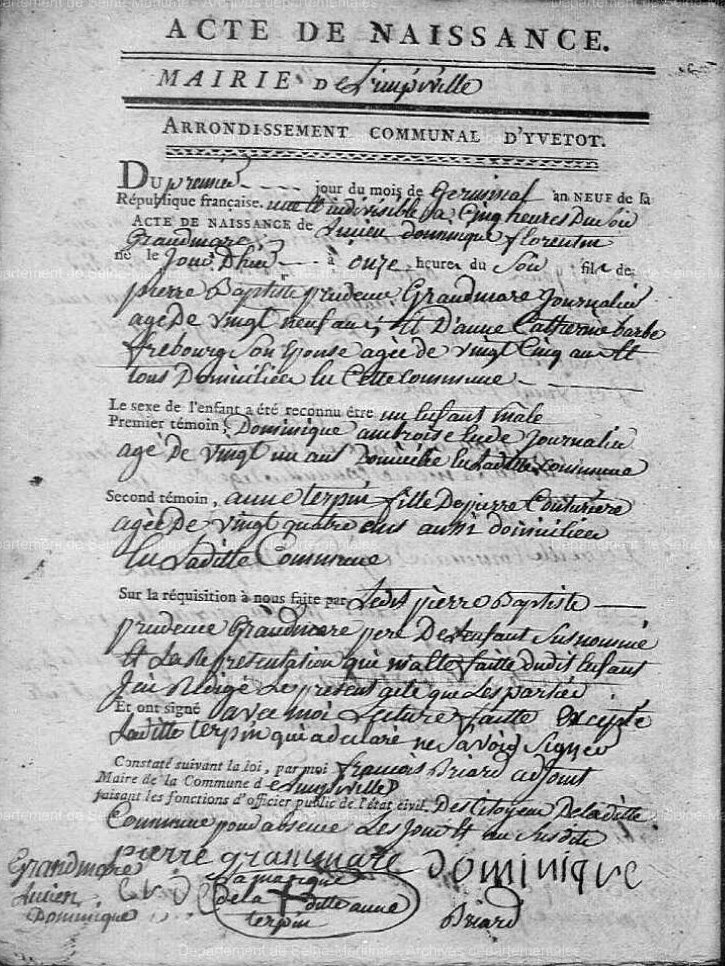 ACTE DE NAISSANCE.
MAIRIE De Limpiville
ARRONDISSEMENT COMMUNAL D'YVETOT.
DU premier jour du mois de Germinal an NEUF de la
République française. une et indivisible a Cinq heures Du Soir
ACTE DE NAISSANCE de Lucien dominique florentin
Grandmare
né le Jour D'hier à onze heures du Soir fils de
pierre Baptiste prudence Grandmare Journalier
agé De vingt neuf ans, Et D'anne Catherine barbe
frebourg Son Epouse agée de vingt Cinq ans Et
tous Domiciliés En Cette Commune
Le sexe de l'enfant a été reconnu être un Enfant male
Premier témoin, Dominique ambroise Journalier
agé De vingt un ans Domicilié En Laditte Commune
Second témoin, anne terpin fille De pierre Couturiere
agée De vingt quatre ans aussi domiciliée
En Laditte Commune
Sur la réquisition à nous faite par Ledit pierre Baptiste
prudence Grandmare pere De L'enfant Susnommé
Et La Représentation qui m'a Eté faitte dudit Enfant
J'ai Rédigé Le present acte que Les parties
Et ont signé avec moi Lecture faitte Excepté
Laditte terpin qui a déclaré ne Savoir Signer
Constaté suivant la loi, par moi françois Briard adjoint
Maire de la Commune de Limpiville
faisant les fonctions d'officier public de l'état civil. Des Citoyens De laditte
Commune pour absence Les Jour Et an Susdits
pierre grammare Dominique
Grandmare
Lucien
Dominique
La marque
de la ditte anne
terpin
Briard